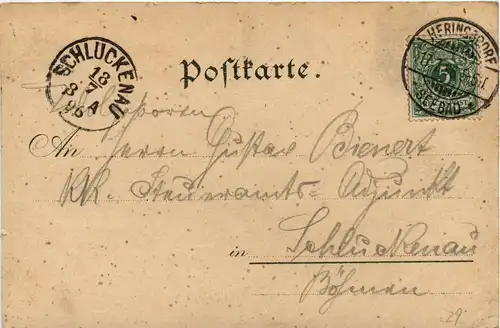 SCHLUCKENAU
18
7
8 A
96
Postkarte.
HERINGSDORF
SEEBAD
5
An Herrn Gustav Bienert
KK. Steueramts-Adjunkt
in Schluckenau
Böhmen
29